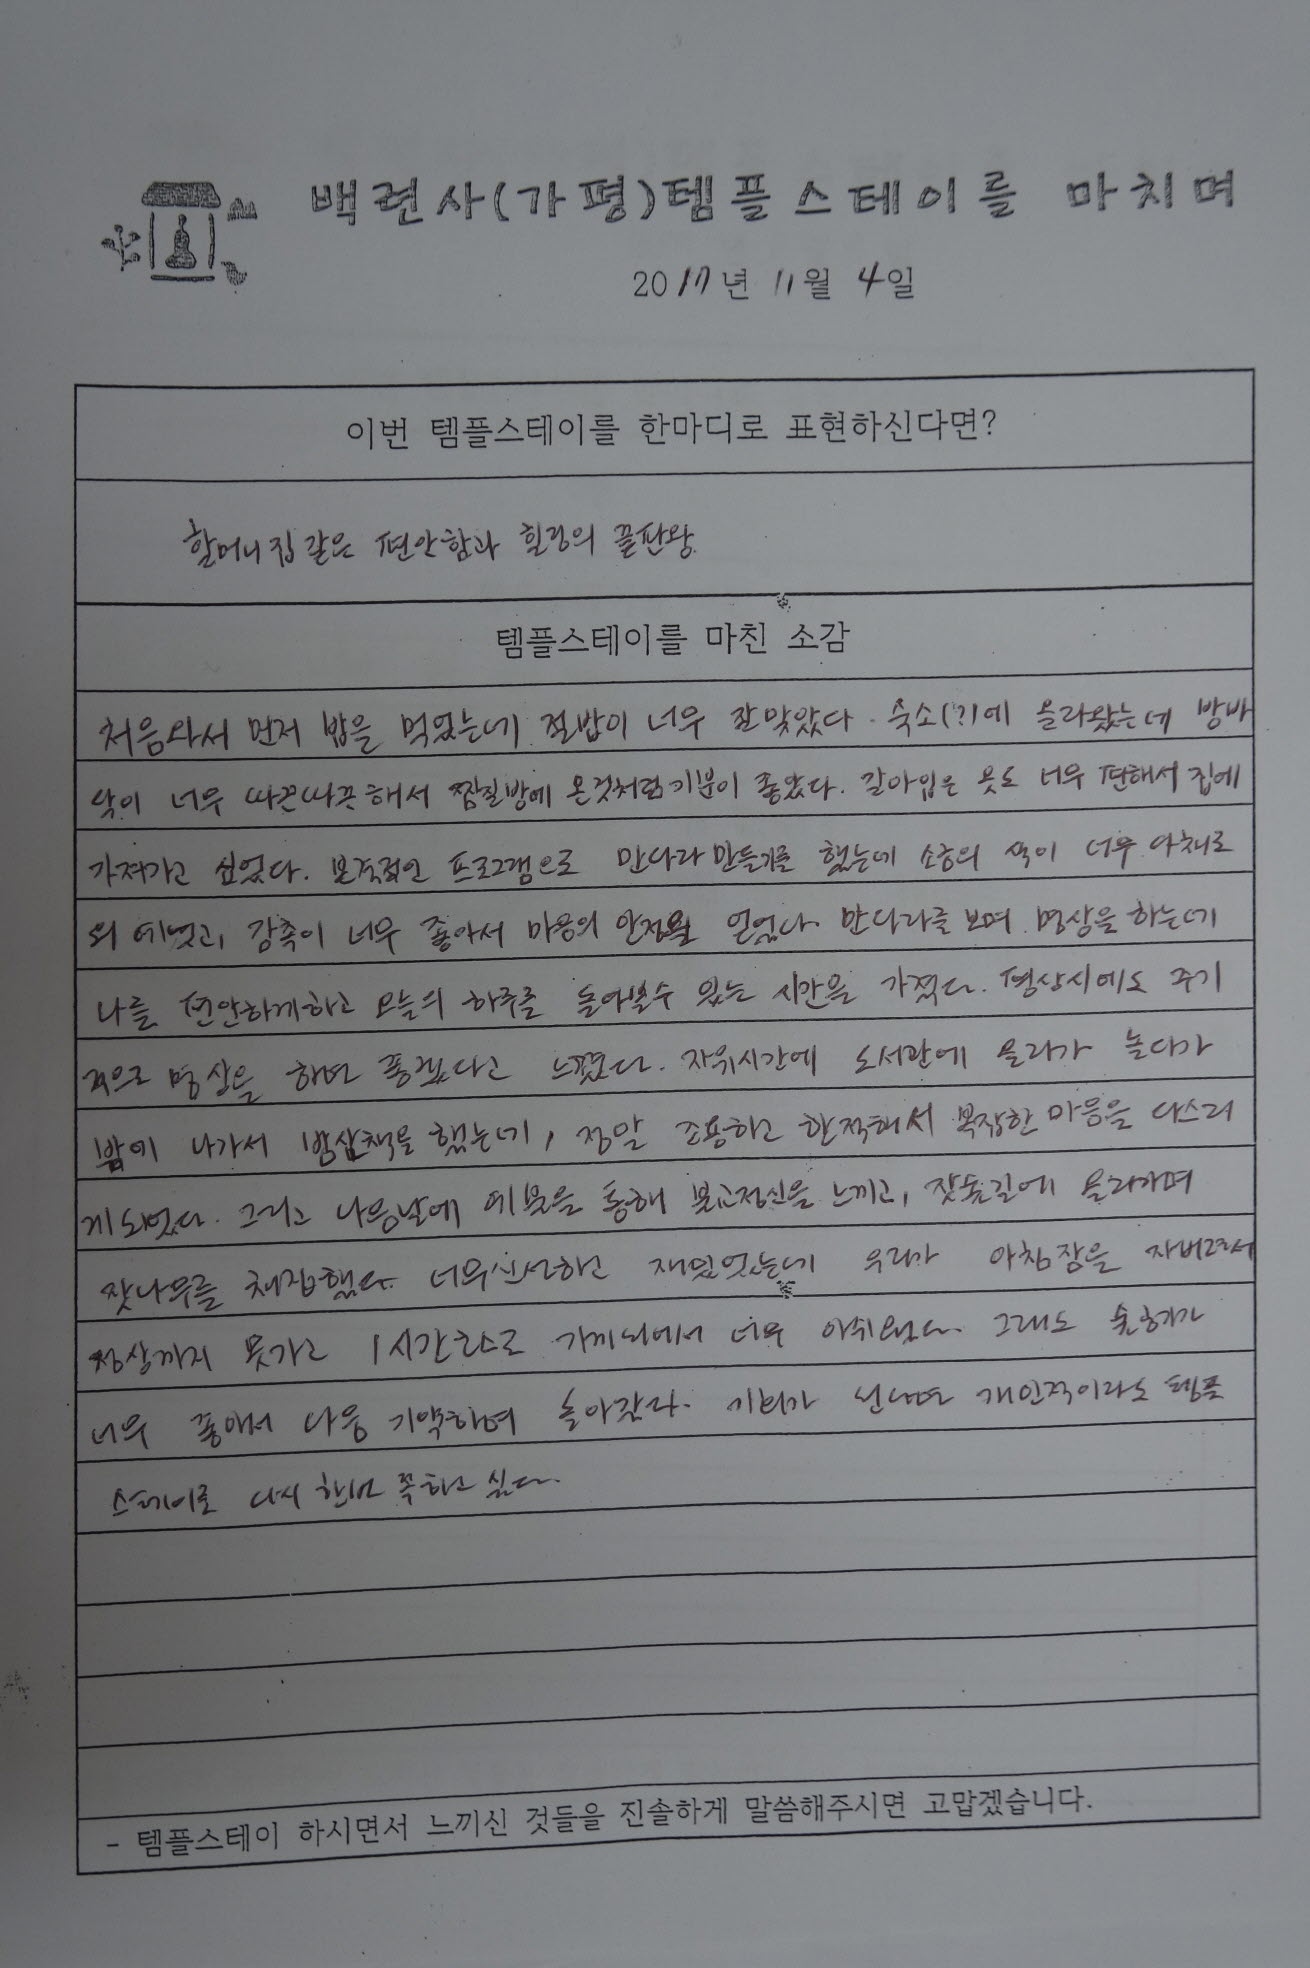 백련사(가평)템플스테이를 마치며
2017년 11월 4일
이번 템플스테이를 한마디로 표현하신다면?
할머니집 같은 편안함과 힐링의 끝판왕
템플스테이를 마친 소감
처음와서 먼저 밥을 먹었는데 절밥이 너무 잘맞았다. 숙소(?)에 올라왔는데 방바
닥이 너무 따끈따끈해서 찜질방에 온것처럼 기분이 좋았다. 갈아입은 옷도 너무 편해서 집에
가져가고 싶었다. 본격적인 프로그램으로 만다라 만들기를 했는데 소금의 색이 너무 다채로
워 예뻤고, 감촉이 너무 좋아서 마음의 안정을 얻었다. 만다라를 보며 명상을 하는데
나를 편안하게하고 오늘의 하루를 돌아볼수 있는 시간을 가졌다. 평상시에도 주기
적으로 명상을 하면 좋겠다고 느꼈다. 자유시간에 도서관에 올라가 놀다가
밖에 나가서 밤산책을 했는데, 정말 조용하고 한적해서 복잡한 마음을 다스리
게되었다. 그리고 다음날에 예불을 통해 불교정신을 느끼고, 잣숲길에 올라가며
잣나무를 체집했다. 너무신선하고 재밌었는데 우리가 아침잠을 자버려서
정상까지 못가고 1시간코스로 가게되어서 너무 아쉬웠다. 그래도 숲향기가
너무 좋아서 다음 기약하며 돌아갔다. 기회가 된다면 개인적이라도 템플
스테이로 다시 한번 꼭하고 싶다.
- 템플스테이 하시면서 느끼신 것들을 진솔하게 말씀해주시면 고맙겠습니다.